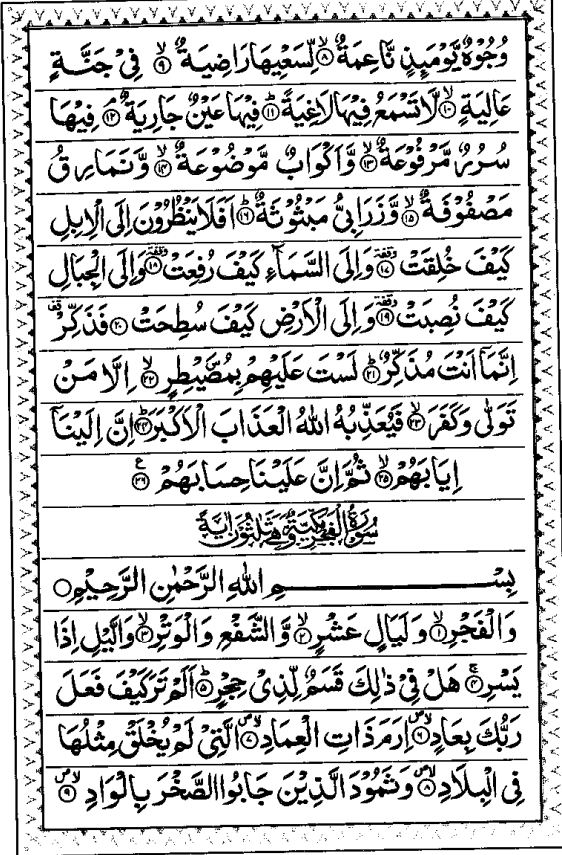 وُجُوْهٌ يَّوْمَىِٕذٍ نَّاعِمَةٌ ۙ۝۸ لِّسَعْيِهَا رَاضِيَةٌ ۙ۝۹ فِيْ جَنَّةٍ
عَالِيَةٍ ۙ۝۱۰ لَّا تَسْمَعُ فِيْهَا لَاغِيَةً ؕ۝۱۱ فِيْهَا عَيْنٌ جَارِيَةٌ ۘ۝۱۲ فِيْهَا
سُرُرٌ مَّرْفُوْعَةٌ ۙ۝۱۳ وَّاَكْوَابٌ مَّوْضُوْعَةٌ ۙ۝۱۴ وَّنَمَارِقُ
مَصْفُوْفَةٌ ۙ۝۱۵ وَّزَرَابِيُّ مَبْثُوْثَةٌ ؕ۝۱۶ اَفَلَا يَنْظُرُوْنَ اِلَى الْاِبِلِ
كَيْفَ خُلِقَتْ ۥ وقفة ۝۱۷ وَاِلَى السَّمَآءِ كَيْفَ رُفِعَتْ وقفة ۝۱۸ وَاِلَى الْجِبَالِ
كَيْفَ نُصِبَتْ وقفة ۝۱۹ وَاِلَى الْاَرْضِ كَيْفَ سُطِحَتْ ۝۲۰ فَذَكِّرْ قف
اِنَّمَاۤ اَنْتَ مُذَكِّرٌ ؕ۝۲۱ لَسْتَ عَلَيْهِمْ بِمُصَۜيْطِرٍ ۙ۝۲۲ اِلَّا مَنْ
تَوَلّٰى وَكَفَرَ ۙ۝۲۳ فَيُعَذِّبُهُ اللّٰهُ الْعَذَابَ الْاَكْبَرَ ؕ۝۲۴ اِنَّ اِلَيْنَاۤ
اِيَابَهُمْ ۙ۝۲۵ ثُمَّ اِنَّ عَلَيْنَا حِسَابَهُمْ ۝۲۶ ع
سُوْرَةُ الْفَجْرِ مَكِّيَّةٌ وَّهِيَ ثَلٰثُوْنَ اٰيَةً
بِسْمِ اللّٰهِ الرَّحْمٰنِ الرَّحِيْمِ ۝
وَالْفَجْرِ ۙ۝۱ وَلَيَالٍ عَشْرٍ ۙ۝۲ وَّالشَّفْعِ وَالْوَتْرِ ۙ۝۳ وَالَّيْلِ اِذَا
يَسْرِ ۚ۝۴ هَلْ فِيْ ذٰلِكَ قَسَمٌ لِّذِيْ حِجْرٍ ؕ۝۵ اَلَمْ تَرَ كَيْفَ فَعَلَ
رَبُّكَ بِعَادٍ ۝۶ اِرَمَ ذَاتِ الْعِمَادِ ۝۷ الَّتِيْ لَمْ يُخْلَقْ مِثْلُهَا
فِي الْبِلَادِ ۝۸ وَثَمُوْدَ الَّذِيْنَ جَابُوا الصَّخْرَ بِالْوَادِ ۝۹